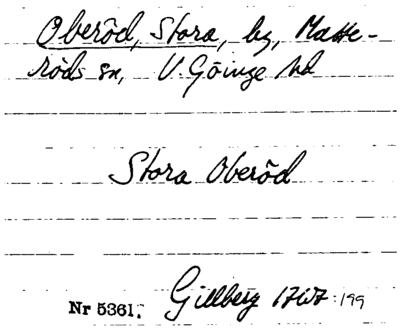 Oberöd, Stora, by, Matte-
röds sn, V. Göinge hd
Stora Oberöd
Nr 5361. Gillberg 1767:199